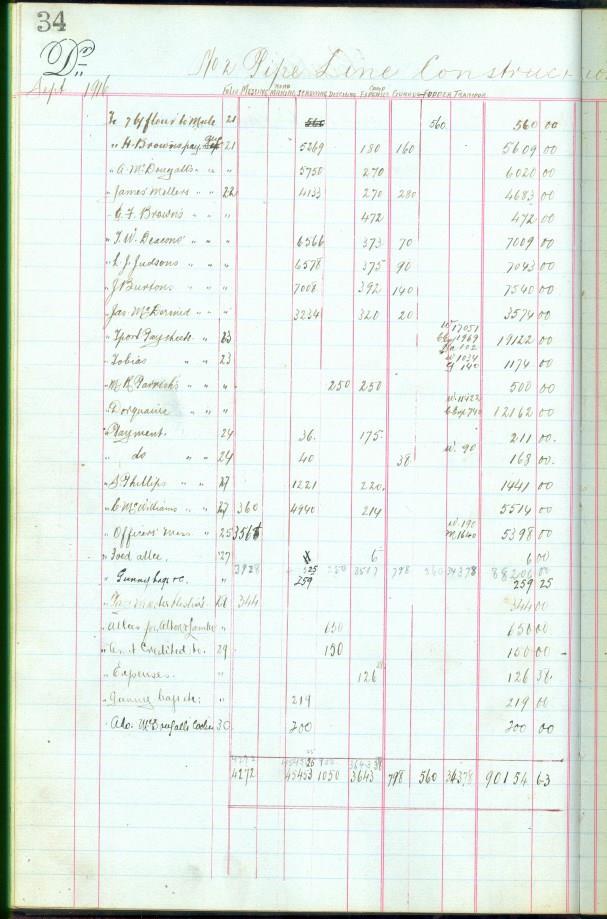 34
Dr
No 2 Pipe Line Construct
Sept 1916
Folio Messing Expenses Fodder Transpor
To flour to Made 21 560 560 560 00
" H. Browns pay 21 5269 180 160 5609 00
" A. McDougalls " " " 5750 270 6020 00
" James Mellers " " 22 4133 270 280 4683 00
" Browns " " " 472 472 00
" T. W. Deacons " " " 6566 373 70 7009 00
" L. J. Judsons " " " 6578 375 90 7043 00
" J. Burtons " " " 7008 392 140 7540 00
" Jas McDermid " " " 3234 320 20 3574 00
" Tport Paysheets " 23 17051 1969 102 19122 00
" Tobias " " 23 1034 140 1174 00
" Parrish's " " " 250 250 500 00
" " " " 11422 740 12162 00
" Payment. 24 36. 175. 211 00.
" do " " 24 40 38 W. 90 168 00.
" Phillips " " 27 1221 220. 1441 00
" McWilliams " " 27 360 4940 214 5514 00
" Officers' Mess. " 25 3568 W. 190 M. 1640 5398 00
" Food allce. " 27 6 6 00
3928 250 3517 798 560 34378 88200 00
" Gunny bags &c. " 259 259 25
" 28 344 344 00
" Allces for 650 650 00
" Am.t Credited to. 29 150 150 00
" Expenses. " 126 38 126 38.
" Gunny bags etc; " 219 219 00
" Alo. McDougalls Cookies 30 200 200 00
4272
4272 45453 1050 3643 798 560 34378 90154 63